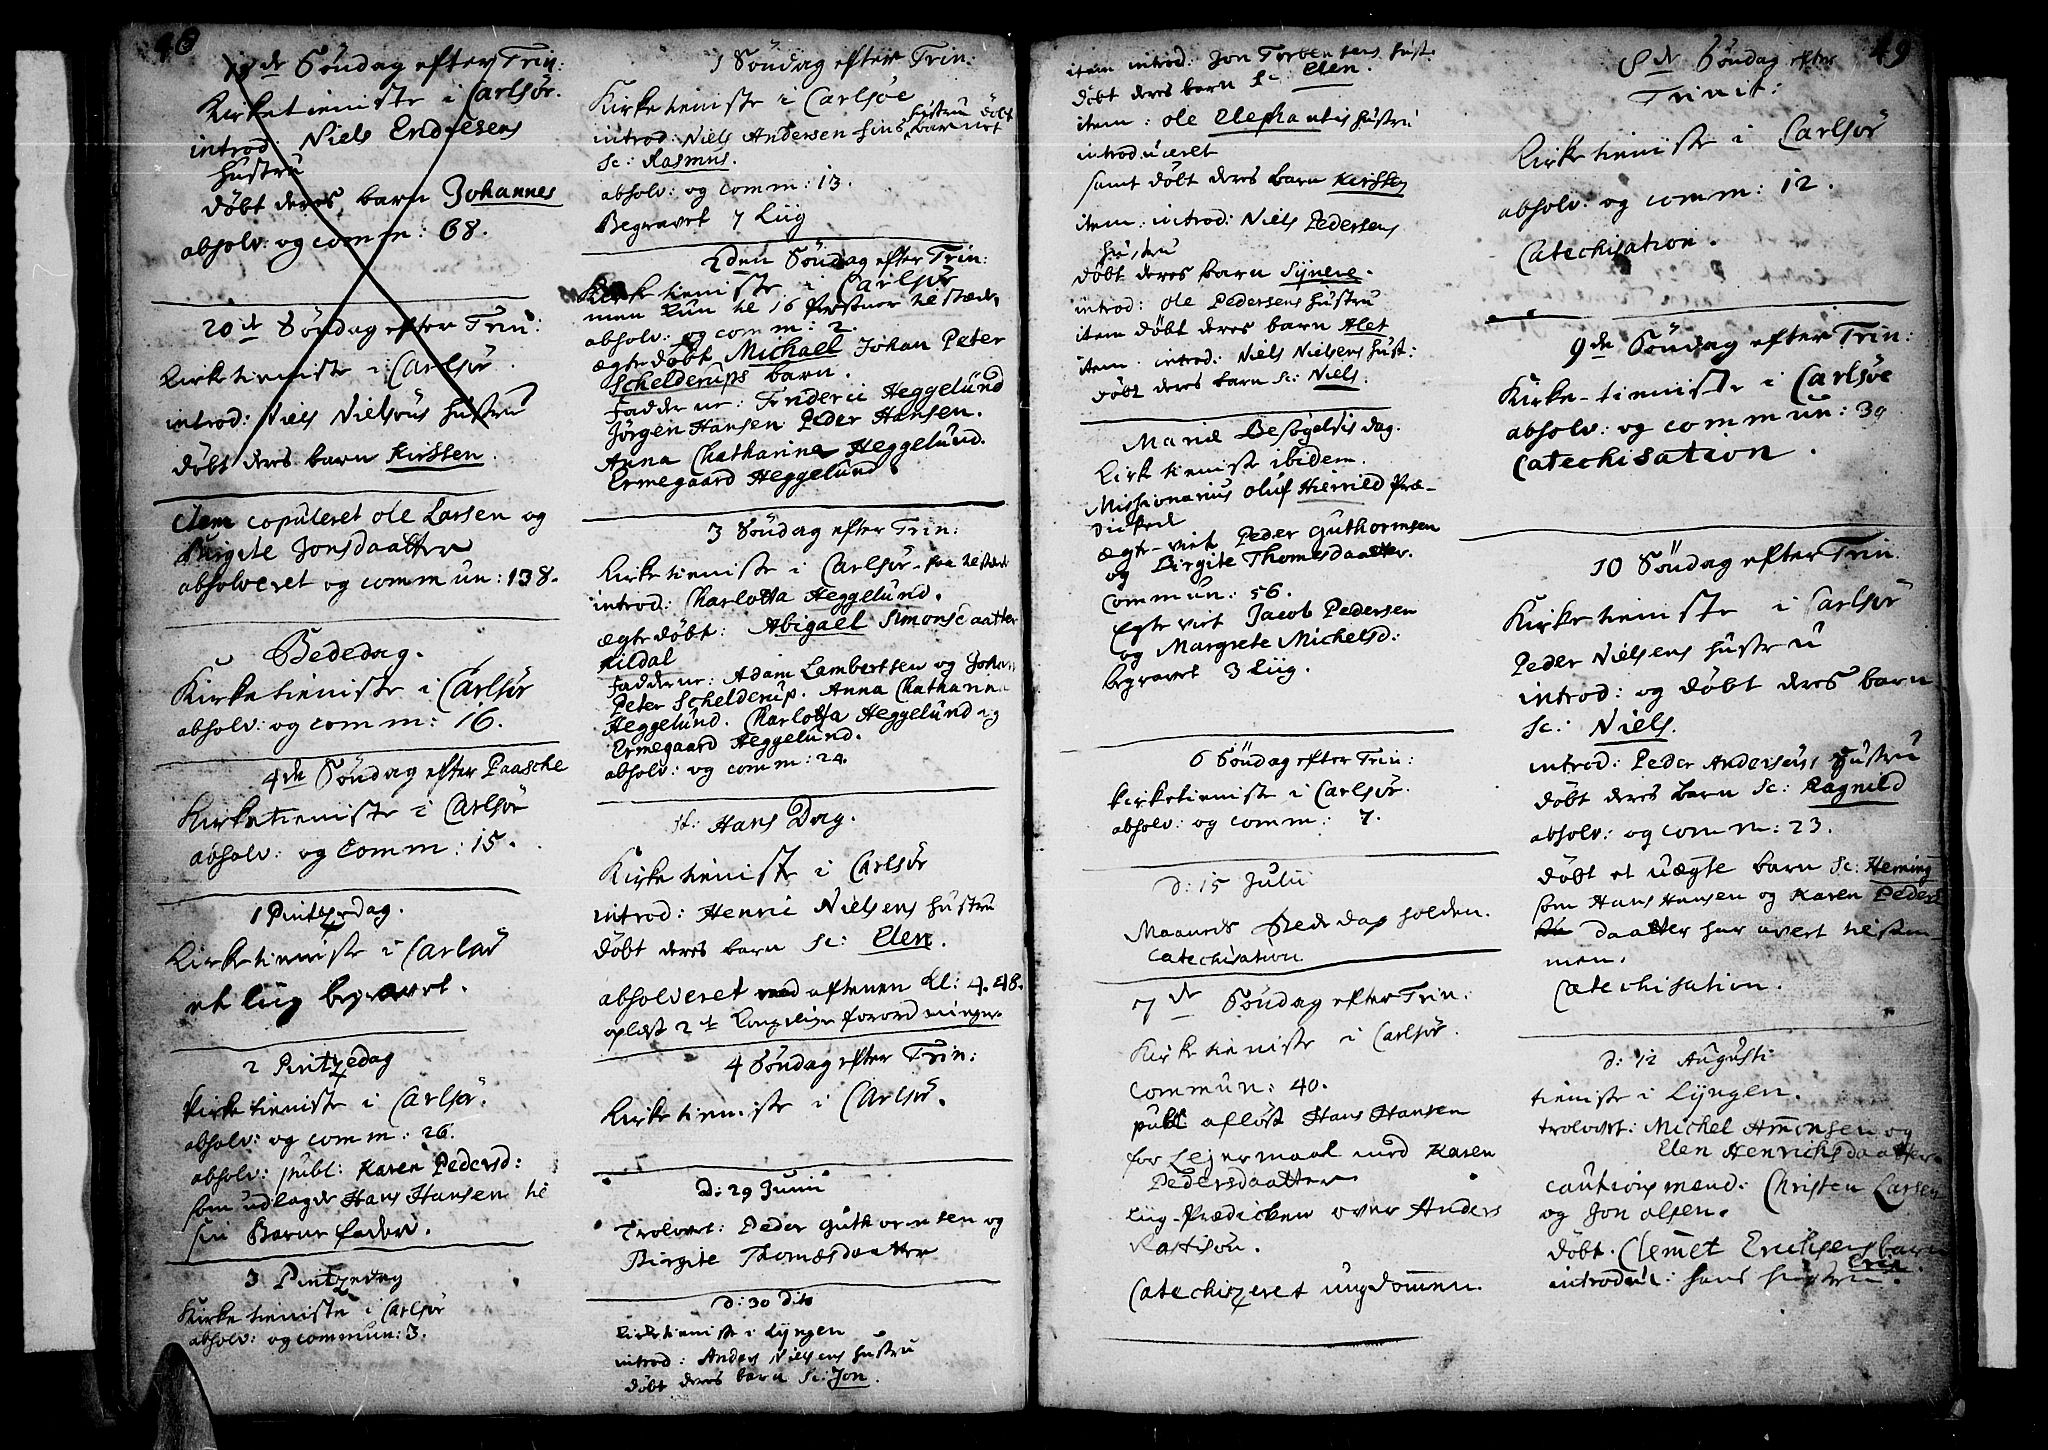 48
19de Söndag efter Trin:
Kirketieniste i Carlsör.
introd: Niels Endresens
hustru
döbt deres barn Johannes
absolv: og comm: 68.
20de Söndag efter Trin:
Kirketieniste i Carlsör.
introd: Niels Nielsöns hustru
döbt deres barn Kirsten.
item copuleret ole Larsen og
Birgite Jonsdaatter
absolveret og commun: 138.
Bededag.
Kirketieniste i Carlsör
absolv: og comm: 16.
4de Söndag efter Paasche
Kirketieniste i Carlsör
absolv: og Comm: 15.
1 Pintzedag.
Kirketieniste i Carlsör
et liig begravet.
2 Pintzedag
Kirketieniste i Carlsör.
absolv: og comm: 26.
absolv: publ: Karen Pedersd:
som udlagde Hans Hansen til
sin Barne fader.
3 Pintzedag
Kirketieniste i Carlsör
absolv: og commun: 3.
1 Söndag efter Trin:
Kirketieniste i Carlsöe
introd: Niels Andersen sins hustru döbt barnet
sc: Rasmus.
absolv: og comm: 13.
Begravet 7 Liig
2den Söndag efter Trin:
Kirketieniste i Carlsör
men kun til 16 Persuner tilstæde
absolv: og comm: 2.
ægte döbt Michael Johan Peter
Schelderups barn.
Fadderne: Frideric Heggelund
Jörgen Hansen Peder Hansen.
Anna Chatharina Heggelund.
Ermegaard Heggelund.
3 Söndag efter Trin:
Kirketieniste i Carlsör
introd: Charlotta Heggelund.
ægte döbt: Abigael Simonsdaatter
Kildal
Fadderne: Adam Lambertsen og Johan
Peter Schelderup. Anna Chatharina
Heggelund. Charlotta Heggelund og
Ermegaard Heggelund.
absolv: og comm: 24.
St: Hans Dag.
Kirketieniste i Carlsör
introd: Henric Nielsens hustru
döbt deres barn sc: Elen.
absolveret aftenen Kl: 4. 48.
oplæst 2de Kongelige forordninger.
4 Söndag efter Trin:
Kirketieniste i Carlsör.
d: 29 Junii
Trolovet: Peder Guthormsen og
Birgite Thomæsdaatter
d: 30 dito
Kirketieniste i Lyngen
introd: Anders Nielsens hustru
döbt deres barn sc: Jon.
49
item introd: Jon Torbensens hust.
döbt deres barn sc: Elen.
item: ole Elephantis hustru
introduceret
samt döbt deres barn Kirsten
item: introd: Niels Pedersens
hustru
döbt deres barn Synere.
introd: ole Pedersens hustru
item döbt deres barn Alet
item introd: Niels Nielsens hust:
döbt deres barn sc: Niels.
Mariæ Besögelsis dag.
Kirketieniste ibidem.
Missionarius oluf Hierrild Præ-
dicked
Ægte-viet Peder Guthormsen
og Birgite Thomesdaatter.
Commun: 56.
Egte viet Jacob Pedersen
og Margrete Michelsd:
begravet 3 liig.
6 Söndag efter Trin:
Kirketieniste i Carlsör.
absolv: og comm: 7.
d: 15 Julii
Maaneds Bededag holden.
Catechisation
7de Söndag efter Trin:
Kirketieniste i Carlsör.
Commun: 40.
publ aflöst Hans Hansen
for Lejermaal med Karen
Pedersdaatter
Liig-Prædicken over Anders
Catechizeret ungdommen.
8de Söndag efter
Trinit:
Kirketieniste i Carlsör
absolv: og comm: 12.
Catechisation.
9de Söndag efter Trin:
Kirke-tieniste i Carlsöe
absolv: og commun: 39
Catechisation.
10 Söndag efter Trin.
Kirketieniste i Carlsör
Peder Nielsens hustru
introd: og döbt deres barn
sc: Niels.
introd: Peder Andersöns hustru
döbt deres barn sc: Ragnild
absolv: og comm: 23.
döbt et uægte barn sc: Heming
som Hans Hansen og Karen Peders
daatter har avlet tilsam-
men.
Catechisation.
d: 12 Augusti
tieniste i Lyngen.
trolovet: Michel Amonsen og
Elen Henrichsdaatter.
Cautionsmænd: Christen Larsen
og Jon olsen.
döbt. Clemet Erichsens barn
Eric.
introduc: hans hustru.